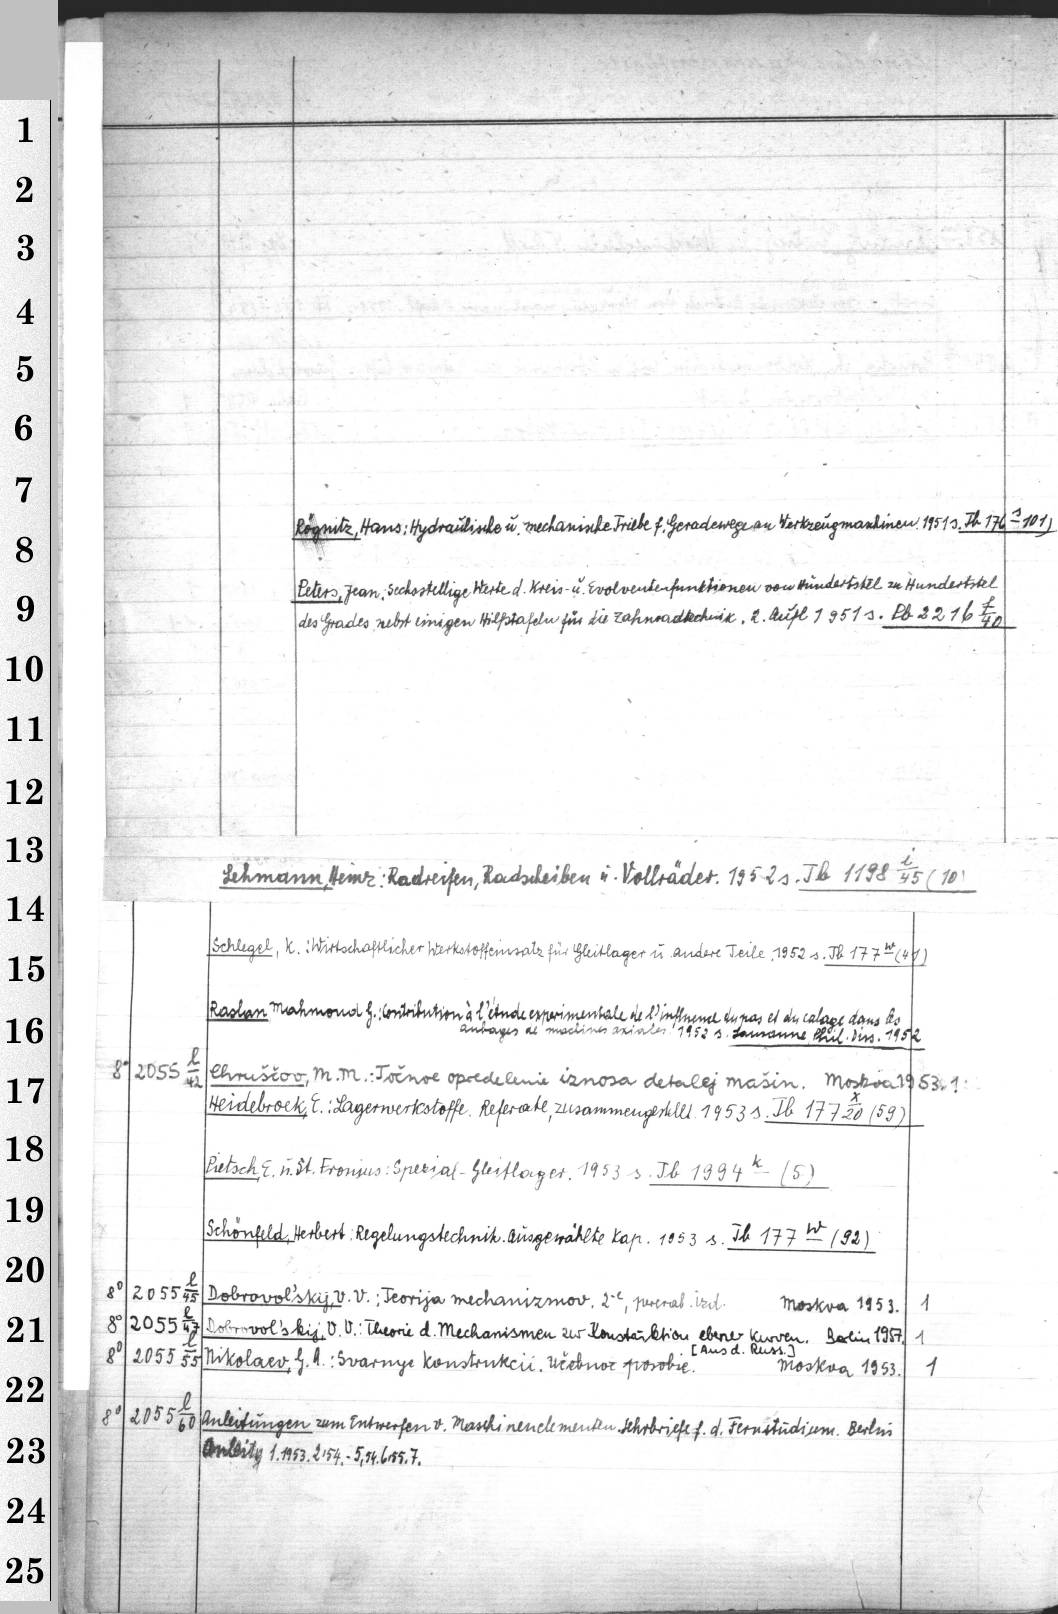 1
2
3
4
5
6
7
Rögnitz, Hans: Hydraulische u. mechanische Triebe f. Geradewege an Werkzeugmaschinen. 1951 s. Tb 176 s (101)
8
Peters, Jean: Sechsstellige Werte d. Kreis- u. Evolventenfunktionen von Hundertstel zu Hundertstel
9
des Grades nebst einigen Hilfstafeln für die Zahnradtechnik. 2. Aufl 1951 s. Pb 2216 f/40
10
11
12
13
Lehmann, Heinz: Radreifen, Radscheiben u. Vollräder. 1952 s. Tb 1198 i/45 (10)
14
Schlegel, K.: Wirtschaftlicher Werkstoffeinsatz für Gleitlager u. andere Teile. 1952 s. Tb 177 w (41)
15
Raslan Mahmoud G.: Contribution à l'étude experimentale de l'influence du pas et du calage dans les
16
aubages de machines axiales. 1952 s. Lausanne, Phil. Diss. 1952
8° 2055 l/42 Chruščov, M.M.: Točnoe opredelenie iznosa detalej mašin. Moskva 1953. 1
17
Heidebroek, E.: Lagerwerkstoffe. Referate, zusammengestellt. 1953 s. Tb 177 x/20 (59)
18
Pietsch, E. u. St. Fronius: Spezial-Gleitlager. 1953 s. Tb 1994 k (5)
19
Schönfeld, Herbert: Regelungstechnik. Ausgewählte Kap. 1953 s. Tb 177 w (92)
20
8° 2055 l/45 Dobrovol'skij, V. V.: Teorija mechanizmov. 2-e, pererab. izd. Moskva 1953. 1
21
8° 2055 l/47 Dobrovol'skij, V. V.: Theorie d. Mechanismen zur Konstruktion ebener Kurven. Berlin 1957. 1
[Aus d. Russ.]
8° 2055 l/55 Nikolaev, G. A.: Svarnye konstrukcii. Učebnoe posobie. Moskva 1953. 1
22
8° 2055 l/60 Anleitungen zum Entwerfen v. Maschinenelementen. Lehrbriefe f. d. Fernstudium. Berlin
23
1.1953. 2.54.-5,54.6.55.7.
24
25